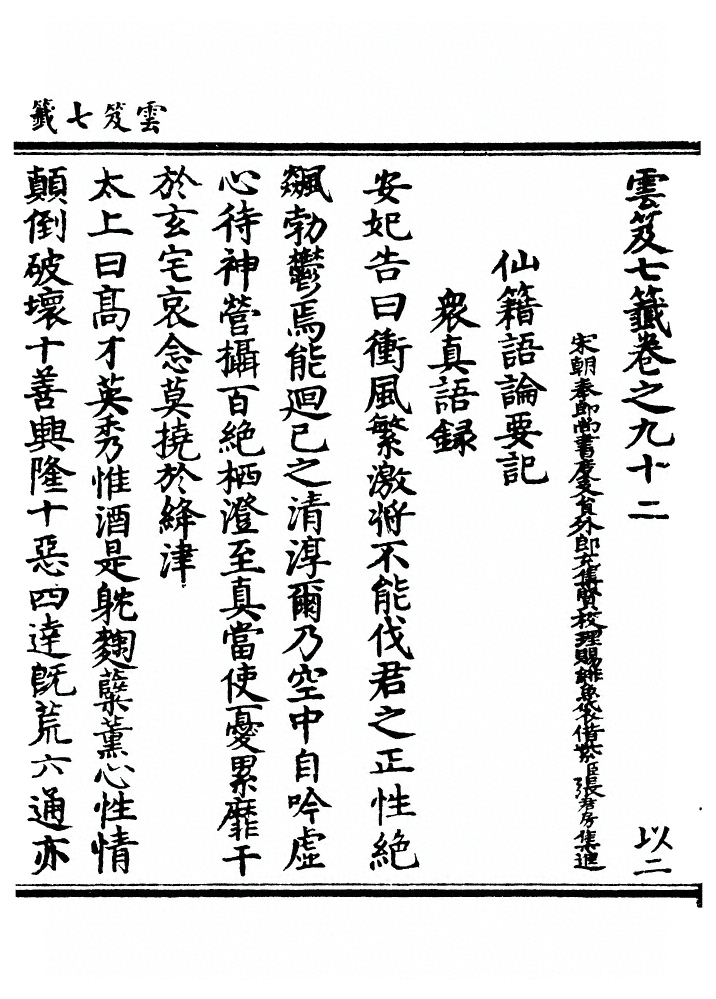 雲笈七籤
雲笈七籤卷之九十二
以二
宋朝奉郎尚書度支員外郎充集賢校理賜緋魚袋借紫臣張君房集進
仙籍語論要記
衆真語録
安妃告曰衝風繁激將不能伐君之正性絶
飆勃鬱焉能迴己之清淳爾乃空中自吟虛
心待神營攝百絶栖澄至真當使憂累靡干
於玄宅哀念莫撓於絳津
太上曰髙才英秀惟酒是躭麴蘖薰心性情
顛倒破壞十善興隆十惡四達旣荒六通亦